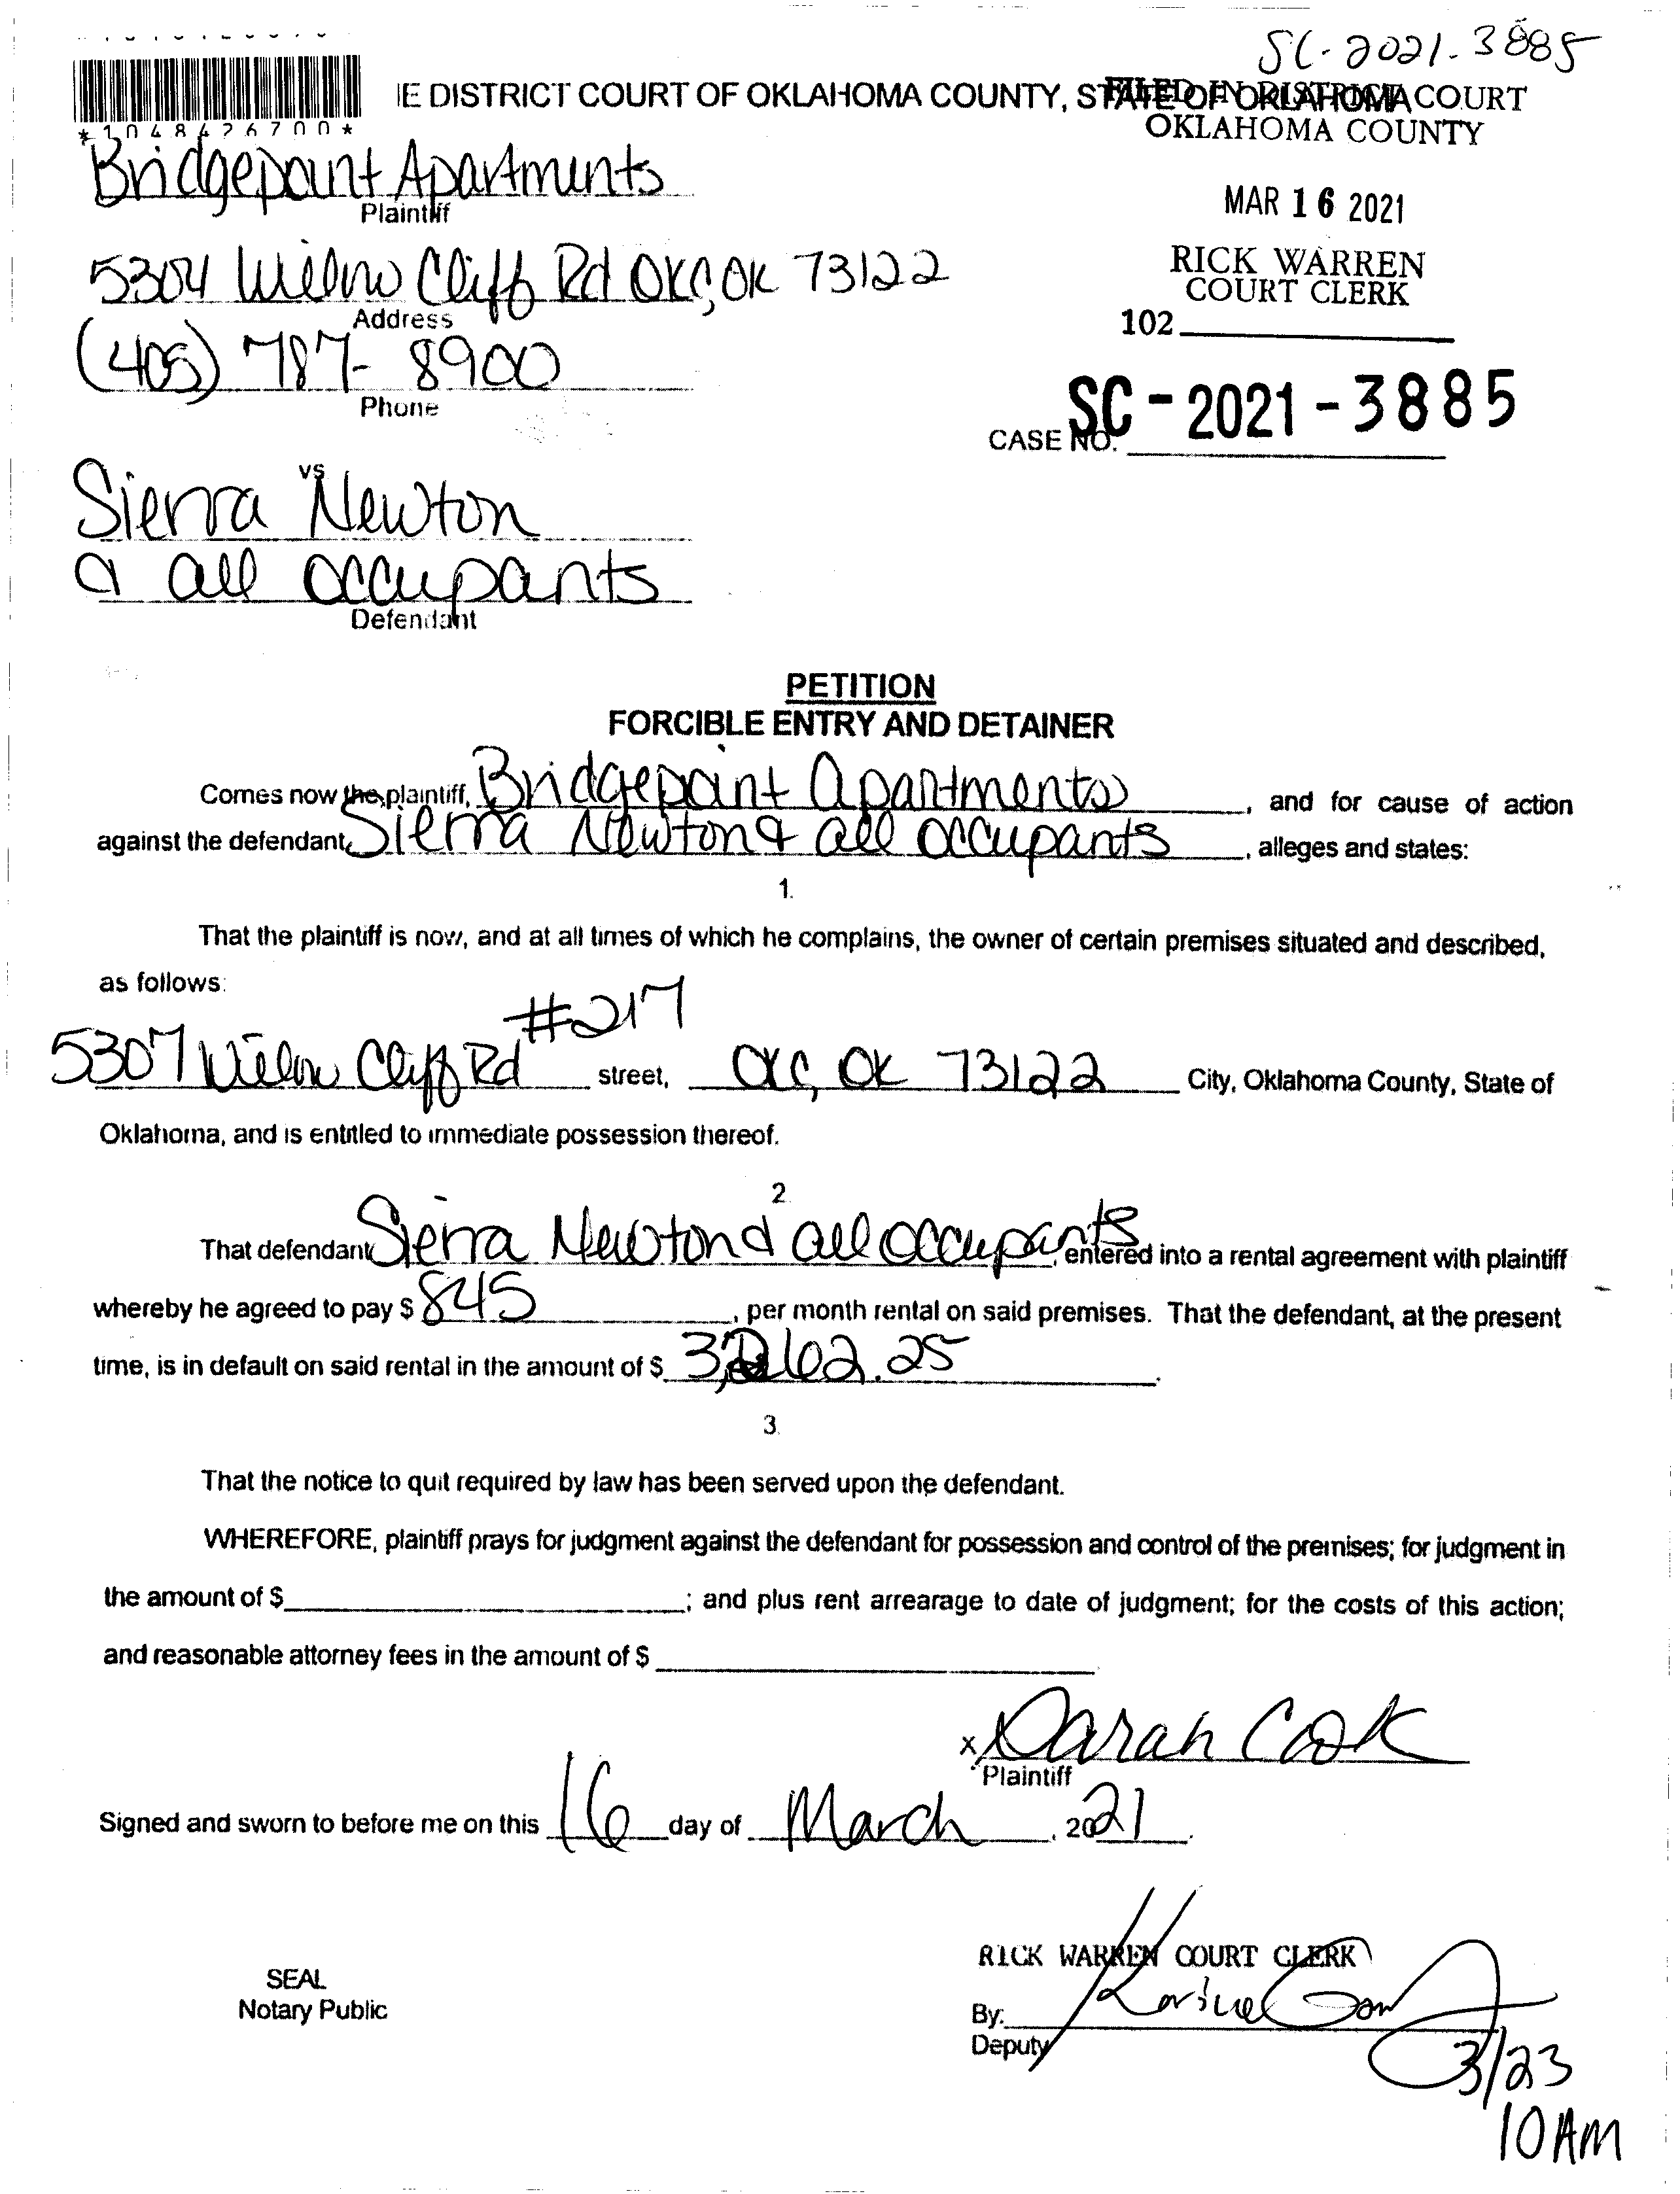 SC-2021-3885
IE DISTRICT COURT OF OKLAHOMA COUNTY, STATE OF OKLAHOMA
FILED IN DISTRICT COURT
OKLAHOMA COUNTY
*1048426700*
Bridgepoint Apartments
Plaintiff
MAR 16 2021
5304 Willow Cliff Rd OKC, OK 73122
Address
RICK WARREN
COURT CLERK
102
(405) 787-8900
Phone
CASE NO. SC-2021-3885
vs
Sierra Newton
& all occupants
Defendant
PETITION
FORCIBLE ENTRY AND DETAINER
Comes now the plaintiff, Bridgepoint Apartments, and for cause of action
against the defendant, Sierra Newton & all occupants, alleges and states:
1.
That the plaintiff is now, and at all times of which he complains, the owner of certain premises situated and described,
as follows:
#217
5307 Willow Cliff Rd street, OKC, OK 73122 City, Oklahoma County, State of
Oklahoma, and is entitled to immediate possession thereof.
2.
That defendant Sierra Newton & all occupants, entered into a rental agreement with plaintiff
whereby he agreed to pay $ 845, per month rental on said premises. That the defendant, at the present
time, is in default on said rental in the amount of $
3.
That the notice to quit required by law has been served upon the defendant.
WHEREFORE, plaintiff prays for judgment against the defendant for possession and control of the premises; for judgment in
the amount of $; and plus rent arrearage to date of judgment; for the costs of this action;
and reasonable attorney fees in the amount of $
x Sarah Cook
Plaintiff
Signed and sworn to before me on this 16 day of March, 2021.
RICK WARREN COURT CLERK
SEAL
Notary Public
By:
Deputy
3/23
10 AM